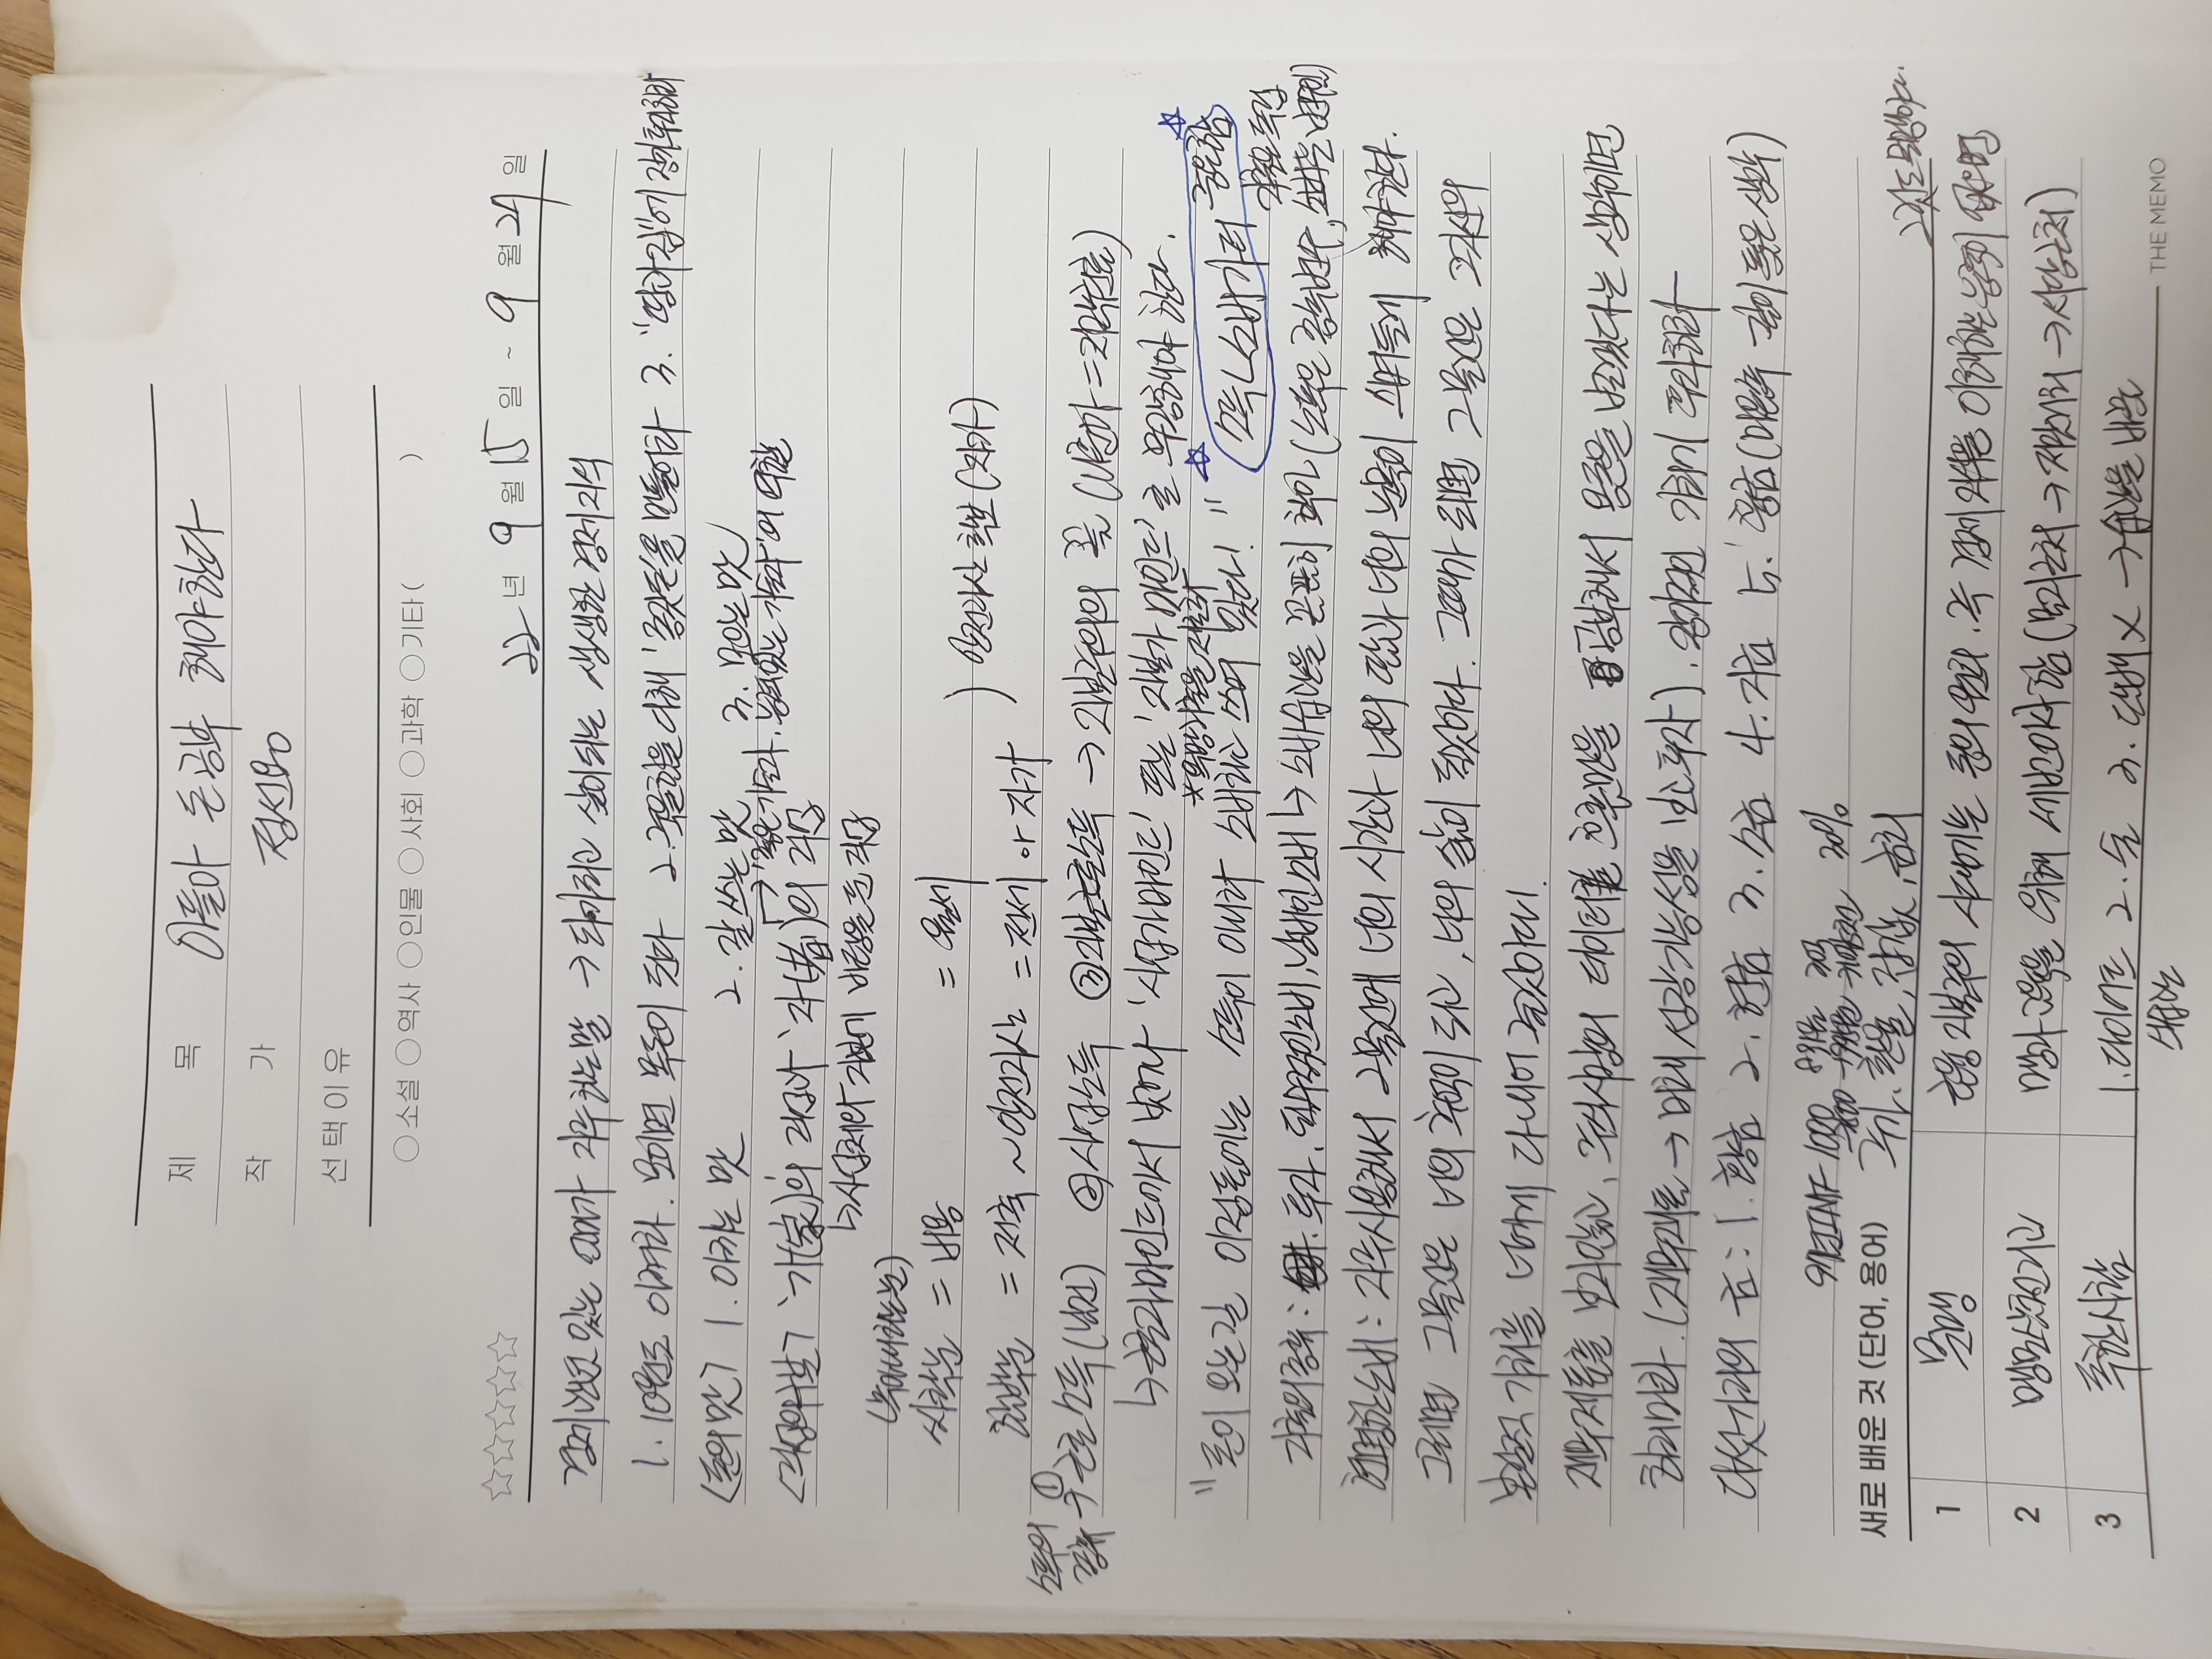 제 목 아들아 돈공부 해야한다
작 가 정선용
선택이유
○소설 ○역사 ○인물 ○사회 ○과학 ○기타( )
☆☆☆☆☆
22년 9월 15일 ~ 9월 27일
경제관념 있는 엄마가 자주하는말 → 되새기고 삶이되는 생생한 경제지식
1. 10원도 아껴라. 모이면 목돈이 된다 2. 죽을힘을 다해 '종잣돈'을 만들어라 3. "땅과 집"에 장기투자하라
<돈의 맛> 1. 아끼는 맛 2. 잘 쓰는 맛 3. 모으는 맛
→ '좋은 기술자, 능력있는 기술자'의 역할
<직업의 > '가(家)'의 직업과 '자(者)'의 직업
↳ 사업체와 자본에 바탕을 둔 직업
(녹아내리는눈)
싸락눈 = 비용 = 월세
함박눈 = 저축 ~ 안전자산 = 전세 or 자가
) 안전자산 확보 (자가)
소득의 종류 → ① 근로소득 ( ) ② 사업소득 ③ 자본근로소득 → 자본주의의 꽃 ( )
↳ 근로자마인드에서 벗어나 '사업가마인드' 또는 '자본가 마인드'로 무장해야 한다.
*욕망지출을 제로화
"돈이 오는길 이정표에는 소득이 아니라 소비라고 쓰여 있다!" ☆ 소득 < 소비가 더 중요함 ☆
지출의종류 : 투자, 필수적인소비, 낭비인소비 ↳ 소비습관을 꼼꼼히 확인 (소득은 종속변수, 지출은 독립변수)
현명한소비 : 자주사용해서 그물건에 너의 시간과 너의 땀과 너의 눈물이 스며들게 해야한다.
그러면 그물건은 너의 추억이 되고, 너의 삶이 될것이다. 그때가 되면 그 물건은 그자신의
본질적 가치를 너에게 다 내어 줄것이다!
재무제표를 보지않고, 주식시장의 데이터와 흐름만을 공부해서 용돈을 벌겠다는 생각이면
하지마라. (재무제표 → 미래 성장가능성을 보고 투자). 장기적인 가치에 투자하라
다섯가지의 금 : 1. 황금 2. 현금 3. 소금 4. 지금 5. (마음속 깊이 품은 생각)
97년IMF 1000 30%
주가, 환율, 집값, 금리
새로 배운 것 (단어, 용어)
1 문맹 금융 자본주의 시대에는 돈의 원리, 즉 경제 지식을 이해하는 능력이 없으면 그것도 문맹이다.
2 맹모삼천지교 맹자 교육을 위해 세번이사함 (묘지근처 → 저잣거리 → 서당근처)
3 독한사람 1. 다이어트 2. 술 3. 담배 X → 습관을 바꿈
THE MEMO